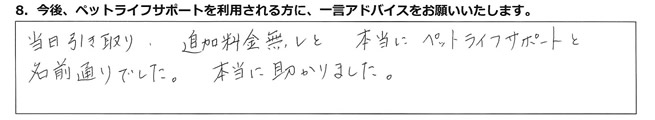 8. 今後、ペットライフサポートを利用される方に、一言アドバイスをお願いいたします。
当日引き取り、追加料金無しと 本当にペットライフサポートと
名前通りでした。 本当に助かりました。